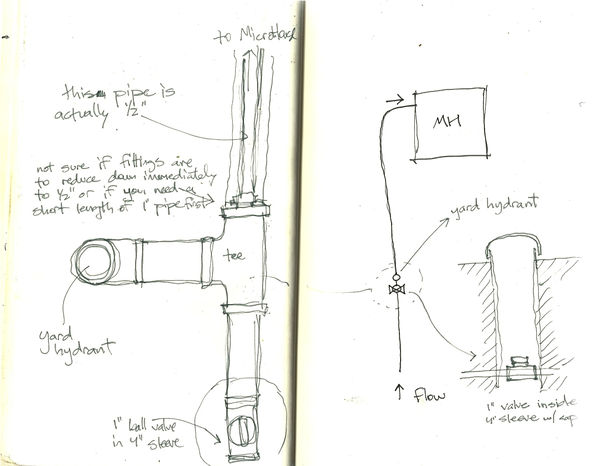 to Microhouse
this pipe is
actually 1/2"
not sure if fittings are
to reduce down immediately
to 1/2" or if you need a
short length of 1" pipe first
tee
yard
hydrant
1" ball valve
in 4" sleeve
MH
yard hydrant
Flow
1" valve inside
4" sleeve w/ cap